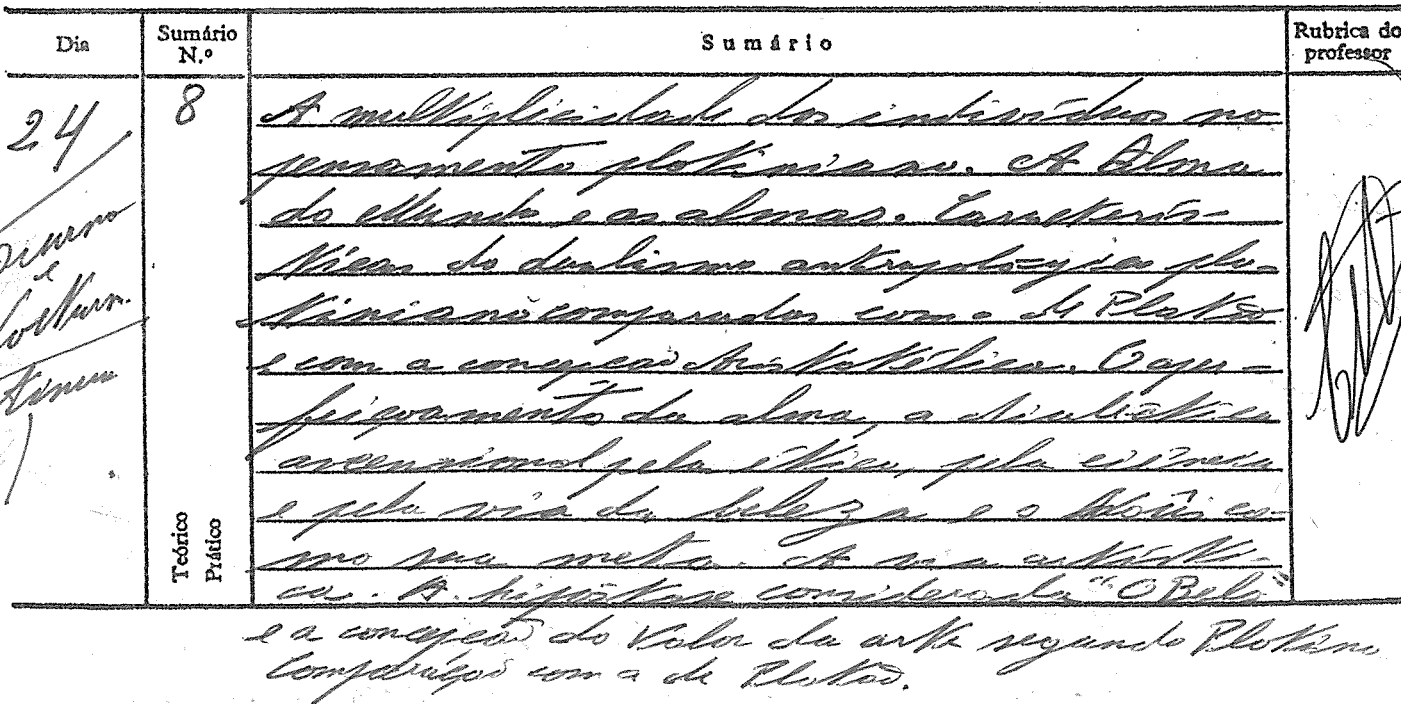 Dia
Sumário N.º
Sumário
Rubrica do professor
24
Diurno
e
Nocturn.
8
Teórico
Prático
A multiplicidade dos indivíduos no
pensamento plotiniano. A Alma
do Mundo e as almas. Caracterís-
ticas do dualismo antropológico plo-
tiniano comparadas com o de Platão
e com a concepção Aristotélica. O aper-
feiçoamento da alma, a dialéctica
ascensional pela ética, pela ciência
e pela via da beleza e o Noûs co-
mo sua meta. A via artísti-
ca. A hipóstase considerada "O Belo"
e a concepção do valor da arte segundo Plotino
Comparação com a de Platão.